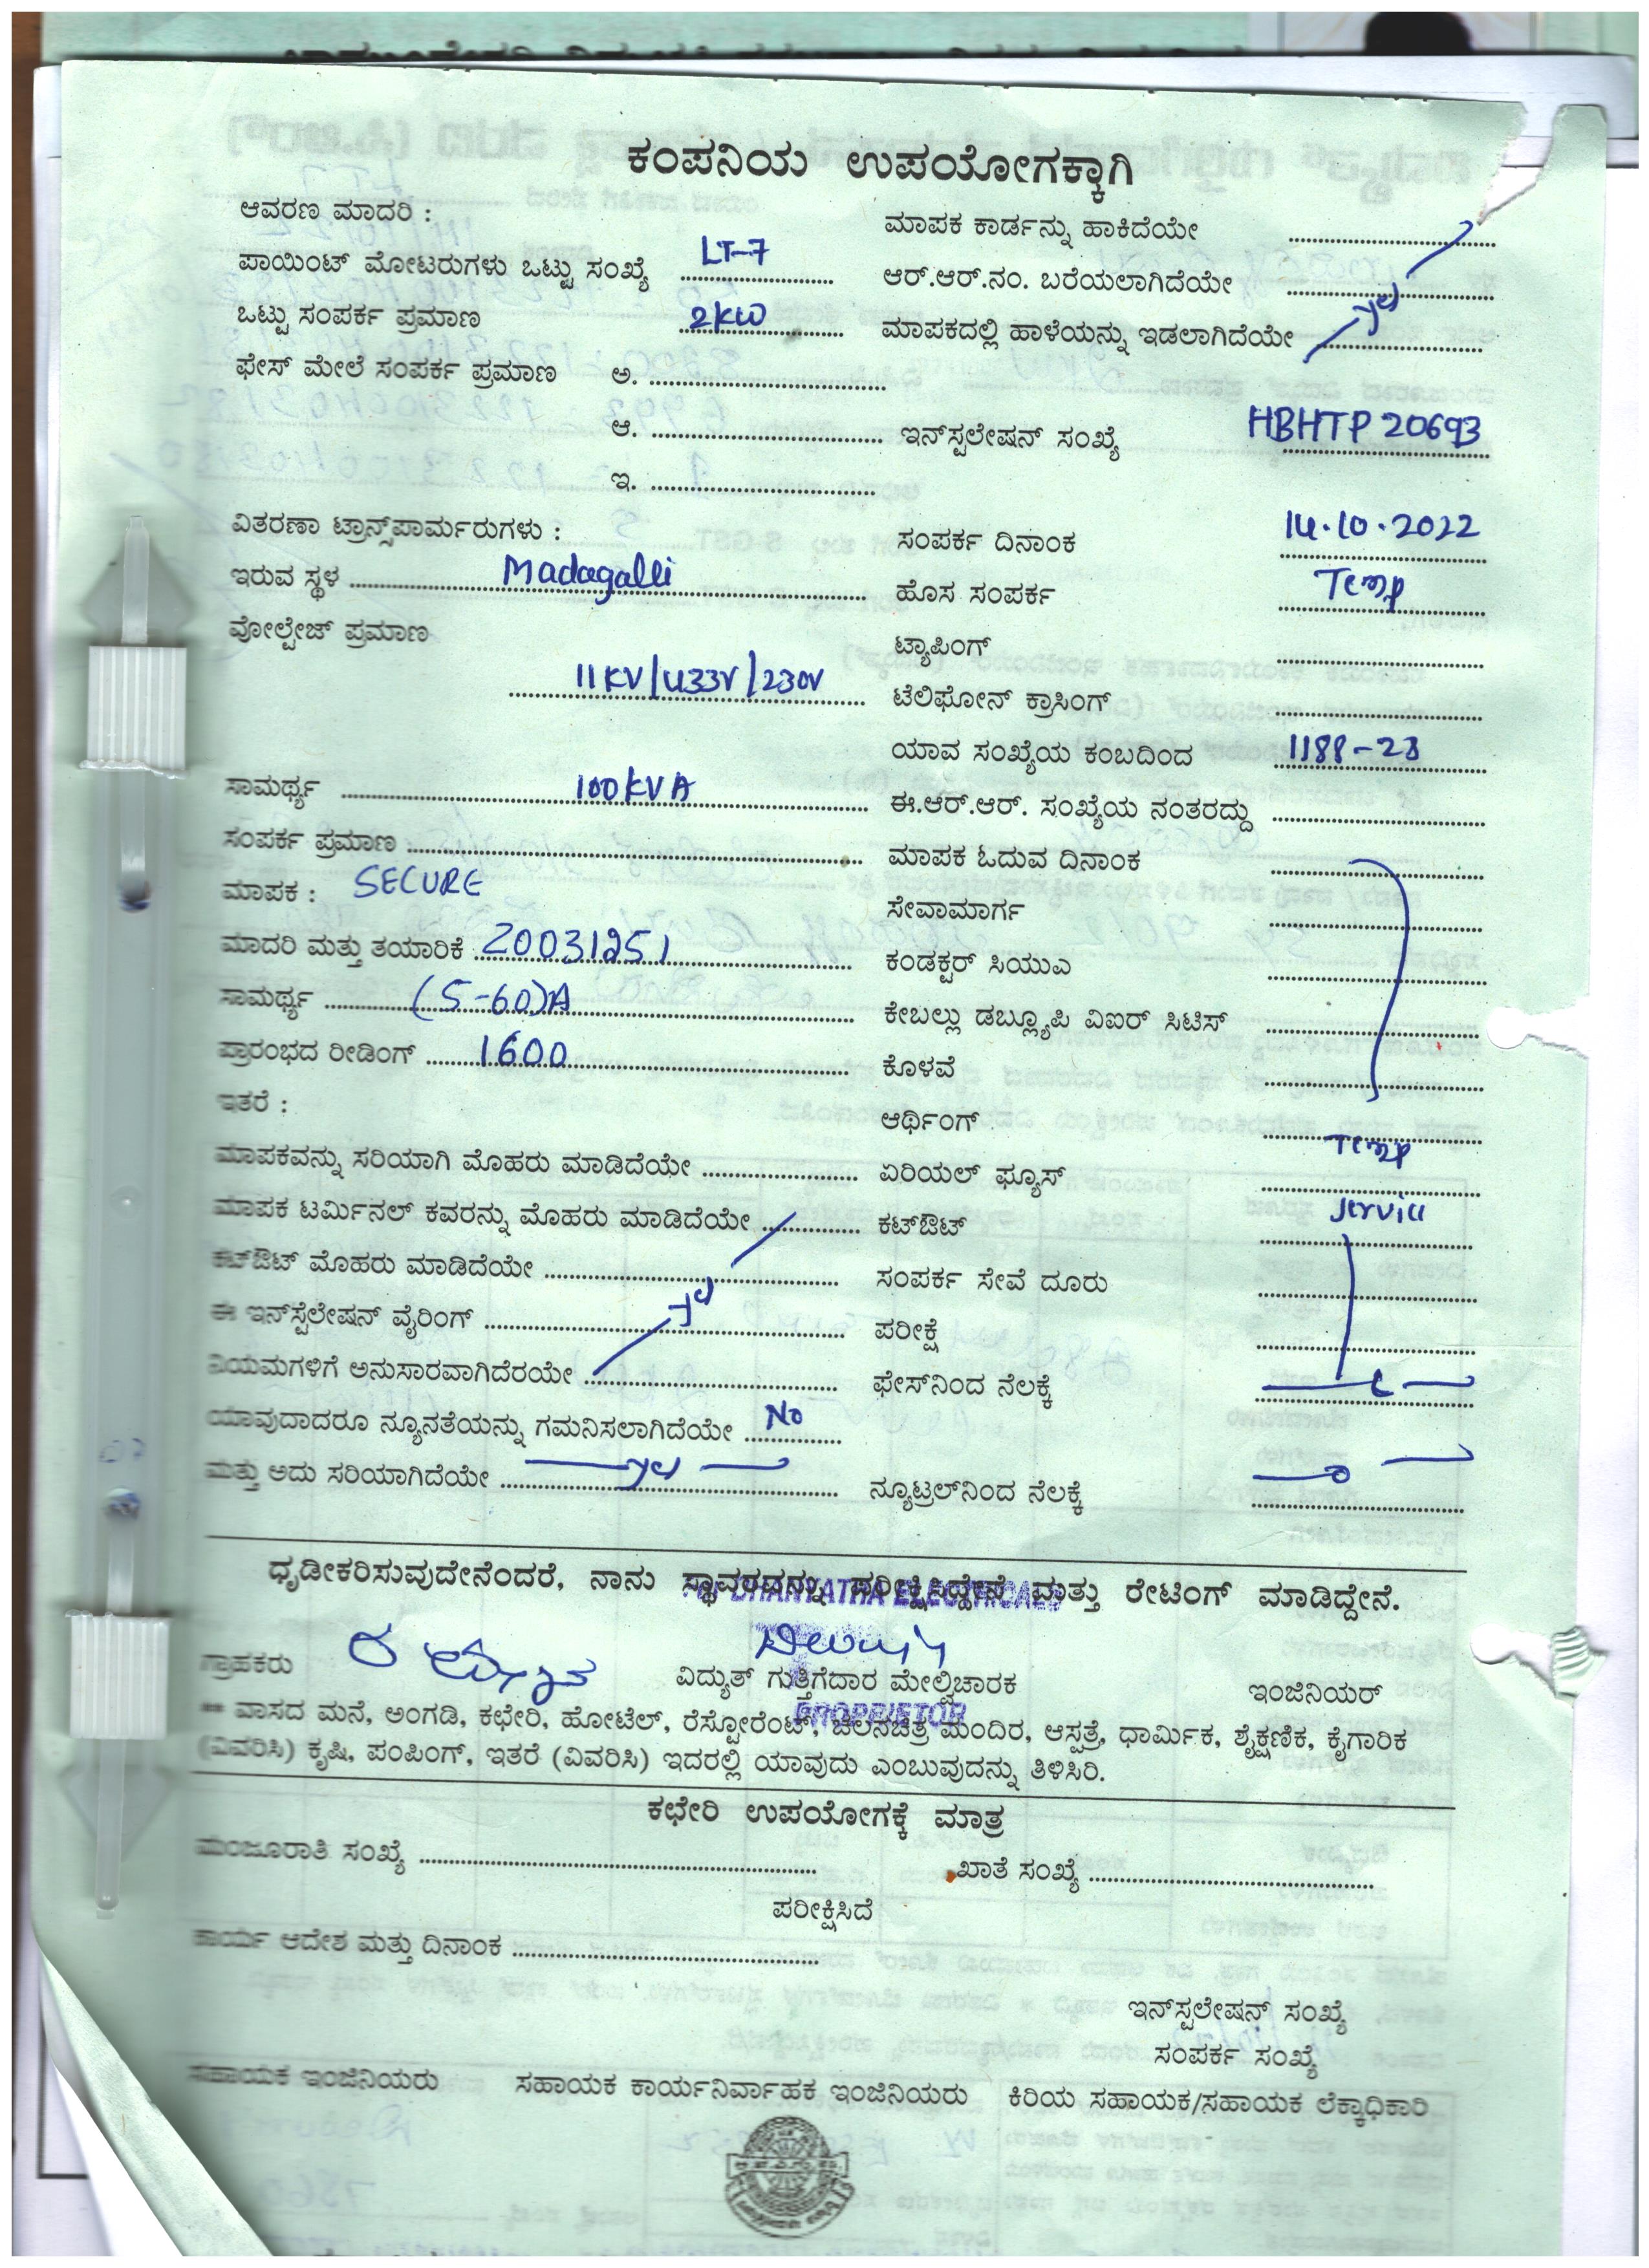 ಕಂಪನಿಯ ಉಪಯೋಗಕ್ಕಾಗಿ
ಆವರಣ ಮಾದರಿ :
ಮಾಪಕ ಕಾರ್ಡನ್ನು ಹಾಕಿದೆಯೇ
ಪಾಯಿಂಟ್ ಮೋಟರುಗಳು ಒಟ್ಟು ಸಂಖ್ಯೆ LT-7
ಆರ್.ಆರ್.ನಂ. ಬರೆಯಲಾಗಿದೆಯೇ
ಒಟ್ಟು ಸಂಪರ್ಕ ಪ್ರಮಾಣ 2KW
ಮಾಪಕದಲ್ಲಿ ಹಾಳೆಯನ್ನು ಇಡಲಾಗಿದೆಯೇ
ಫೇಸ್ ಮೇಲೆ ಸಂಪರ್ಕ ಪ್ರಮಾಣ ಅ.
ಆ.
ಇನ್‌ಸ್ಟಲೇಷನ್ ಸಂಖ್ಯೆ HBHTP 20693
ಇ.
ವಿತರಣಾ ಟ್ರಾನ್ಸ್‌ಪಾರ್ಮರುಗಳು :
ಸಂಪರ್ಕ ದಿನಾಂಕ 14.10.2022
ಇರುವ ಸ್ಥಳ Madagalli
ಹೊಸ ಸಂಪರ್ಕ Temp
ವೋಲ್ಟೇಜ್ ಪ್ರಮಾಣ
ಟ್ಯಾಪಿಂಗ್
11KV/433V/230V
ಟೆಲಿಫೋನ್ ಕ್ರಾಸಿಂಗ್
ಯಾವ ಸಂಖ್ಯೆಯ ಕಂಬದಿಂದ 1188-23
ಸಾಮರ್ಥ್ಯ 100KVA
ಈ.ಆರ್.ಆರ್. ಸಂಖ್ಯೆಯ ನಂತರದ್ದು
ಸಂಪರ್ಕ ಪ್ರಮಾಣ
ಮಾಪಕ ಓದುವ ದಿನಾಂಕ
ಮಾಪಕ : SECURE
ಸೇವಾಮಾರ್ಗ
ಮಾದರಿ ಮತ್ತು ತಯಾರಿಕೆ 20031251
ಕಂಡಕ್ಟರ್ ಸಿಯುಎ
ಸಾಮರ್ಥ್ಯ (5-60)A
ಕೇಬಲ್ಲು ಡಬ್ಲ್ಯೂಪಿ ವಿಐರ್ ಸಿಟಿಸ್
ಪ್ರಾರಂಭದ ರೀಡಿಂಗ್ 1600
ಕೊಳವೆ
ಇತರೆ :
ಆರ್ಥಿಂಗ್ Temp
ಮಾಪಕವನ್ನು ಸರಿಯಾಗಿ ಮೊಹರು ಮಾಡಿದೆಯೇ
ಏರಿಯಲ್ ಫ್ಯೂಸ್
ಮಾಪಕ ಟರ್ಮಿನಲ್ ಕವರನ್ನು ಮೊಹರು ಮಾಡಿದೆಯೇ
ಕಟ್‌ಔಟ್
ಕಟ್‌ಔಟ್ ಮೊಹರು ಮಾಡಿದೆಯೇ
ಸಂಪರ್ಕ ಸೇವೆ ದೂರು
ಈ ಇನ್‌ಸ್ಟೆಲೇಷನ್ ವೈರಿಂಗ್
ಪರೀಕ್ಷೆ
ನಿಯಮಗಳಿಗೆ ಅನುಸಾರವಾಗಿದೆರಯೇ
ಫೇಸ್‌ನಿಂದ ನೆಲಕ್ಕೆ
ಯಾವುದಾದರೂ ನ್ಯೂನತೆಯನ್ನು ಗಮನಿಸಲಾಗಿದೆಯೇ No
ಮತ್ತು ಅದು ಸರಿಯಾಗಿದೆಯೇ
ನ್ಯೂಟ್ರಲ್‌ನಿಂದ ನೆಲಕ್ಕೆ
ಧೃಡೀಕರಿಸುವುದೇನೆಂದರೆ, ನಾನು ಸ್ಥಾವರವನ್ನು ಪರೀಕ್ಷಿಸಿದ್ದೇನೆ ಮತ್ತು ರೇಟಿಂಗ್ ಮಾಡಿದ್ದೇನೆ.
ಗ್ರಾಹಕರು
ವಿದ್ಯುತ್ ಗುತ್ತಿಗೆದಾರ ಮೇಲ್ವಿಚಾರಕ
ಇಂಜಿನಿಯರ್
PROPRIETOR
** ವಾಸದ ಮನೆ, ಅಂಗಡಿ, ಕಛೇರಿ, ಹೋಟೆಲ್, ರೆಸ್ಟೋರೆಂಟ್, ಚಲನಚಿತ್ರ ಮಂದಿರ, ಆಸ್ಪತ್ರೆ, ಧಾರ್ಮಿಕ, ಶೈಕ್ಷಣಿಕ, ಕೈಗಾರಿಕ
(ವಿವರಿಸಿ) ಕೃಷಿ, ಪಂಪಿಂಗ್, ಇತರೆ (ವಿವರಿಸಿ) ಇದರಲ್ಲಿ ಯಾವುದು ಎಂಬುವುದನ್ನು ತಿಳಿಸಿರಿ.
ಕಛೇರಿ ಉಪಯೋಗಕ್ಕೆ ಮಾತ್ರ
ಮಂಜೂರಾತಿ ಸಂಖ್ಯೆ
ಖಾತೆ ಸಂಖ್ಯೆ
ಪರೀಕ್ಷಿಸಿದೆ
ಕಾರ್ಯ ಆದೇಶ ಮತ್ತು ದಿನಾಂಕ
ಇನ್‌ಸ್ಪಲೇಷನ್ ಸಂಖ್ಯೆ
ಸಂಪರ್ಕ ಸಂಖ್ಯೆ
ಸಹಾಯಕ ಇಂಜಿನಿಯರು
ಸಹಾಯಕ ಕಾರ್ಯನಿರ್ವಾಹಕ ಇಂಜಿನಿಯರು
ಕಿರಿಯ ಸಹಾಯಕ/ಸಹಾಯಕ ಲೆಕ್ಕಾಧಿಕಾರಿ